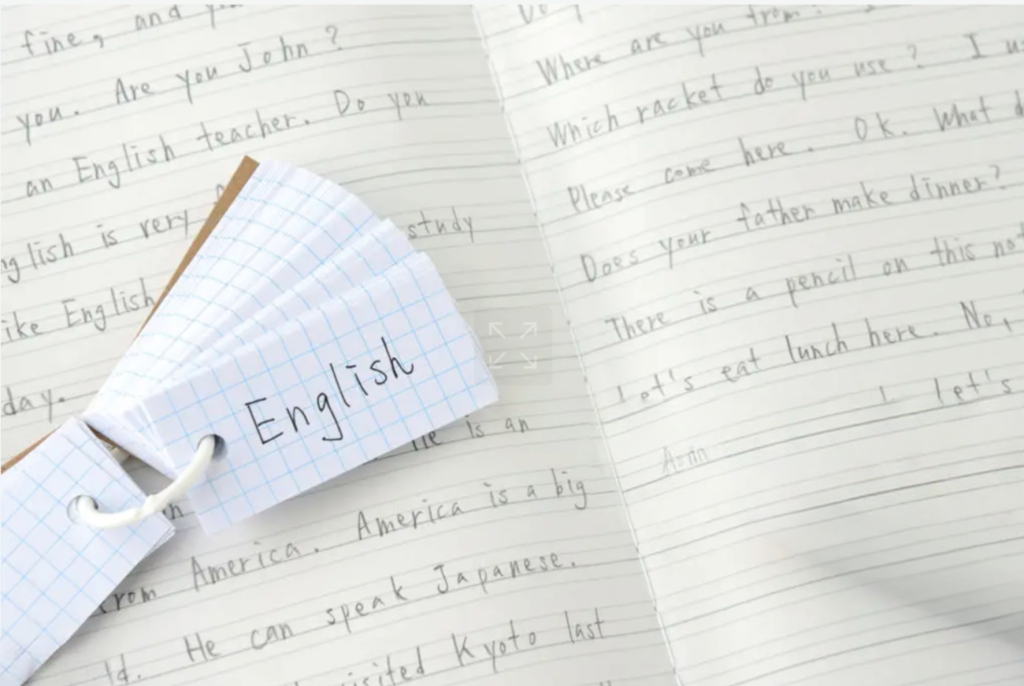 fine, and
you. Are you John?
an English teacher. Do you
is very
study
English
day.
English
is an
America. America is a big
He can speak Japanese.
Kyoto last
Where are you from?
Which racket do you use? I
Please come here. OK. What
Does your father make dinner?
There is a pencil on this
Let's eat lunch here. No,
let's